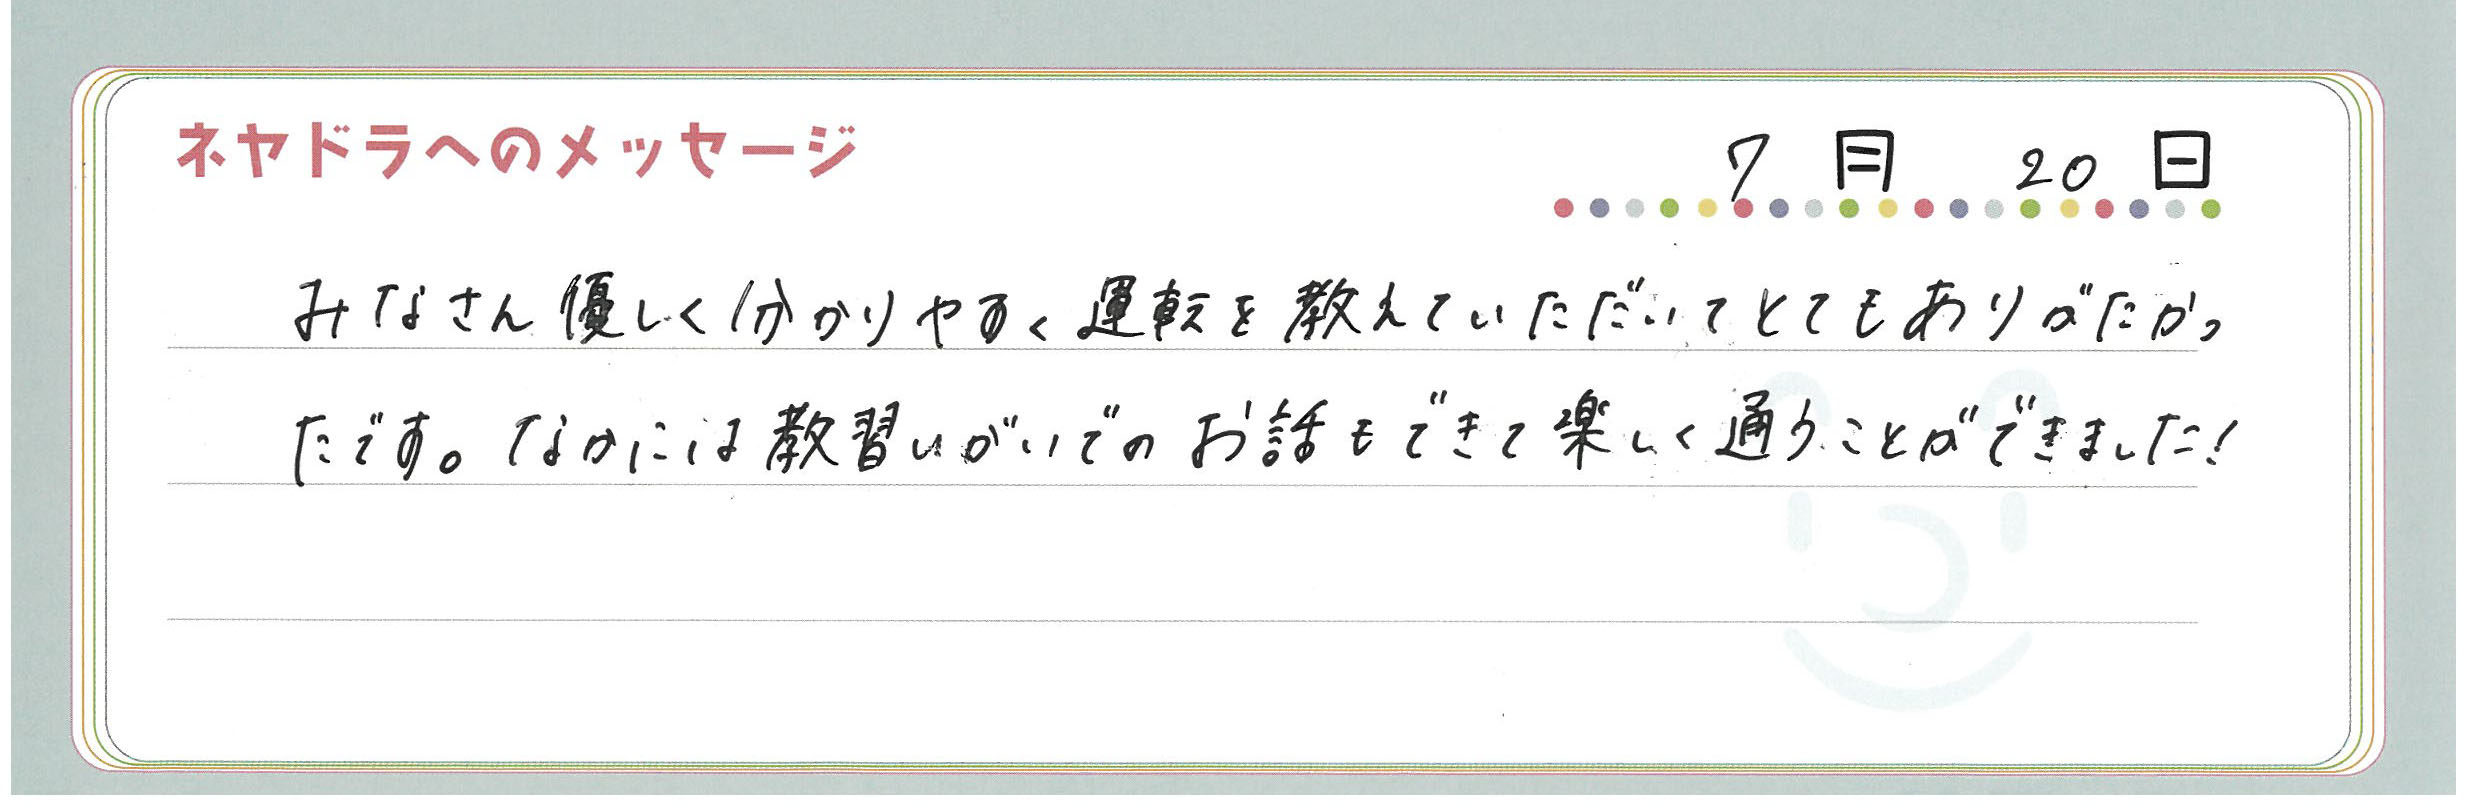 ネヤドラへのメッセージ
7月 20日
みなさん優しく分かりやすく運転を教えていただいてとてもありがたかっ
たです。なかには教習いがいでのお話もできて楽しく通うことができました!